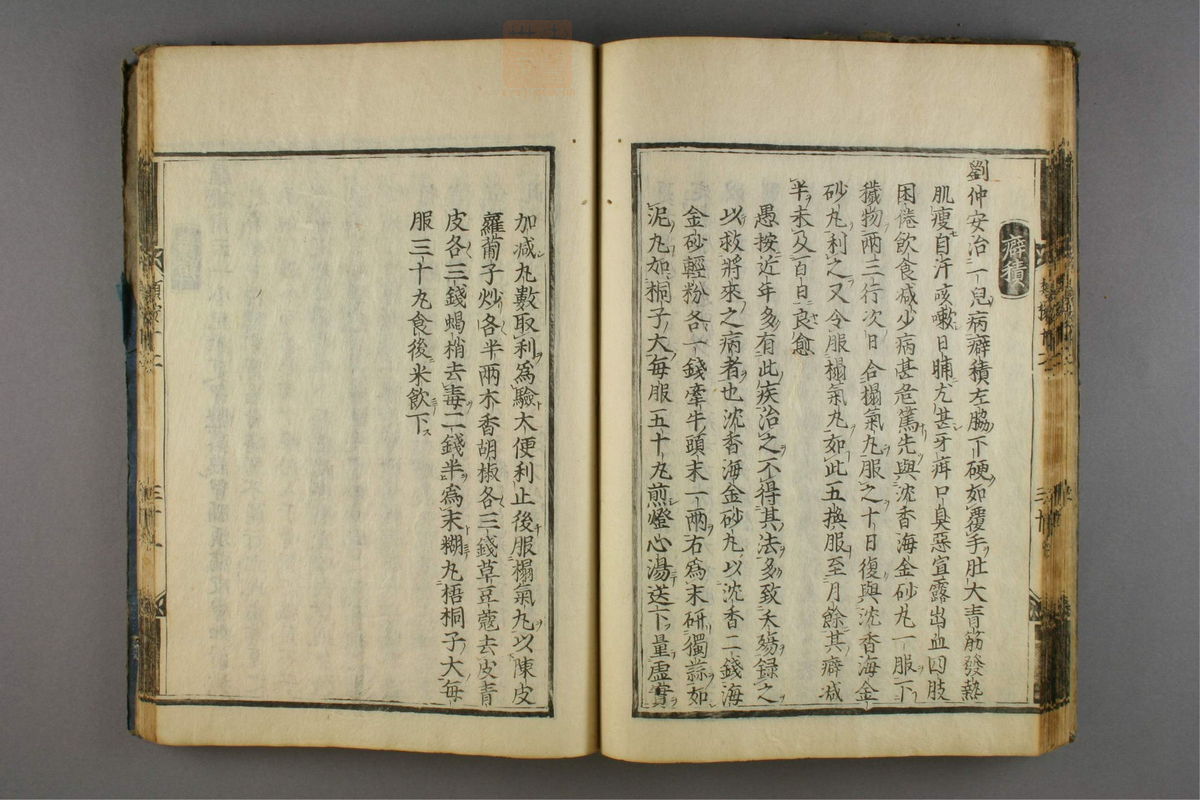 癖積
劉仲安治一兒病癖積左脇下硬如覆手肚大青筋發熱
肌瘦自汗咳嗽日晡尤甚牙疳口臭惡宣露出血四肢
困倦飲食减少病甚危篤先與沈香海金砂丸一服下
穢物兩三行次日合搨氣丸服之十日復與沈香海金
砂丸利之又令服搨氣丸如此五換服至月餘其癖减
半未及百日良愈
愚按近年多有此疾治之不得其法多致夭殤録之
以救將來之病者也沈香海金砂丸以沈香二錢海
金砂輕粉各一錢牽牛頭末一兩右為末研獨蒜如
泥丸如桐子大毎服五十丸煎燈心湯送下量虛實
加减丸數取利為驗大便利止後服搨氣丸以陳皮
蘿蔔子炒各半兩木香胡椒各三錢草豆蔻去皮青
皮各三錢蝎梢去毒二錢半為末糊丸梧桐子大毎
服三十丸食後米飲下